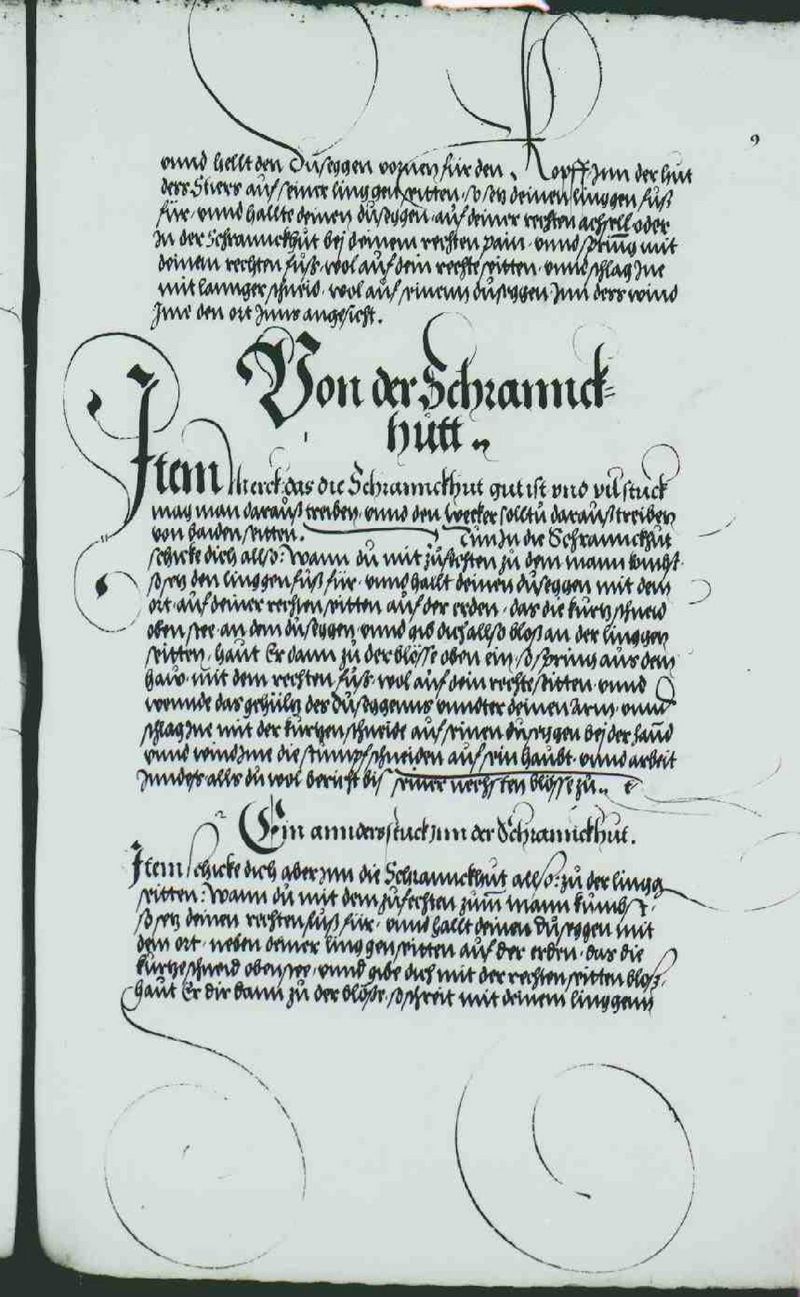 9
vnnd hellt den Duseggen vornen für den Kopff Inn der hut
ders Stiers auf seiner linggen seitten, so setz deinen linggen fuß
für, vnnd hallte deinen duseggen auf deiner rechten achsell oder
In der Schrannckhut bej deinem rechten pain, vnnd spring mit
deinem rechten fuß, wol auf dein rechte seitten, vnnd schlag Ine
mit lannger schneid, wol auf seinenn duseggen Inn dess wind
Ime den ort Inns angesicht.
Von der Schrannck-
hutt
Item Merck das die Schrannckhut gut ist vnd vil stuck
mag man darauß treiben, vnnd den wecker solltu darauß treiben
von baiden seitten. Tun In die Schrannckhut
schicke dich allso: Wann du mit zufechten zu dem mann kumbst
so setz den linggen fuß für, vnnd hallt deinen duseggen mit dem
ort, auf deiner rechten seitten auf der erden, das die kurtz schneid
oben see, an dem duseggen, vnnd gib dich allso bloß an der linggen
seitten, haut Er dann zu der blösse oben ein, so spring aus dem
haw, mit dem rechten fuß, wol auf dein rechte seitten, vnnd
wennde das gehültz des duseggenns vnndter deinen arm, vnnd
schlag Ine mit der kurtzen schneide auf seinen duseggen bej der hannd
vnnd wind Ime die stumpf schneiden auf sein haubt, vnnd arbeit
Inndes alls du wol bericht bist seiner nechsten blösse zu
Ein annders stuck Inn der Schrannckhut.
Item schicke dich aber Inn die Schrannckhut allso: zu der lingg
seitten: Wann du mit dem zufechten zum mann kumbst,
so setz deinen rechten fuß für, vnnd hallt deinen Duseggen mit
dem ort, neben deiner linggen seitten auf der erden, das die
kurtze schneid oben see, vnnd gibe dich mit der rechten seitten bloß,
haut Er dir dann zu der blöße, so schreit mit deinem linggenn